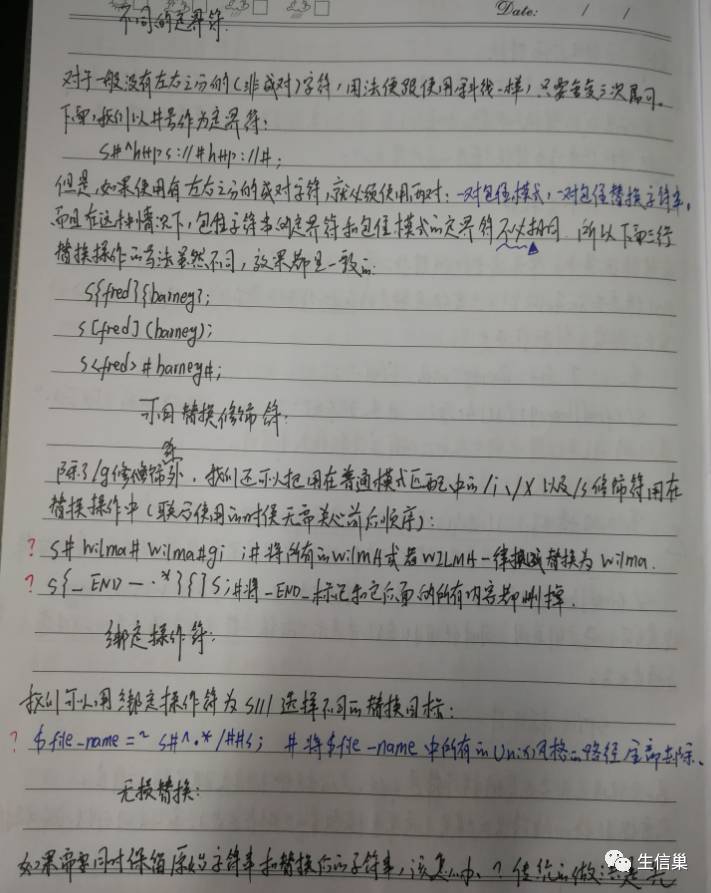 Date: / /
不同的定界符:
对于一般没有左右之分的(非成对)字符,用法便跟使用斜线一样,只要重复三次即可。
下面,我们以井号作为定界符:
s#^https://#http://#;
但是,如果使用有左右之分的成对字符,就必须使用两对:一对包住模式,一对包住替换字符串,
而且在这种情况下,包住字符串的定界符和包住模式的定界符不必相同,所以下面三行
替换操作的写法虽然不同,效果都是一致的:
s{fred}{barney};
s[fred](barney);
s<fred>#barney#;
可用替换修饰符:
除了/g修饰符外,我们还可以把用在普通模式匹配中的/i、/x以及/s修饰符用在
替换操作中(联合使用的时候无需关心前后顺序):
? s#wilma#Wilma#gi ;#将所有的WilmA或者WILMA一律替换为Wilma.
? s{_END_.*}{}s;#将_END_标记和它后面的所有内容都删掉.
绑定操作符:
我们可以用绑定操作符为s///选择不同的替换目标:
? $file_name =~ s#^.*/##s; #将$file_name中所有的Unix风格的路径全部去除、
无损替换:
如果需要同时保留原始字符串和替换后的字符串,该怎么办?传统的做法是先
生信巢